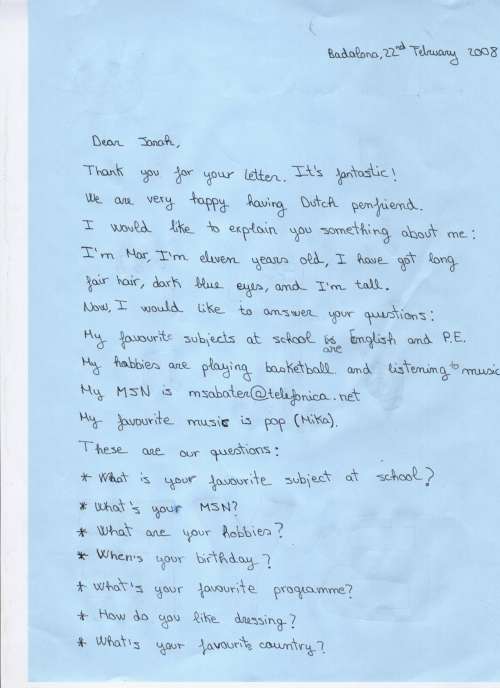 Badalona, 22nd February 2008
Dear Janah,
Thank you for your letter. It's fantastic!
We are very happy having Dutch penfriend.
I would like to explain you something about me:
I'm Mar, I'm eleven years old, I have got long
fair hair, dark blue eyes, and I'm tall.
Now, I would like to answer your questions:
My favourite subjects at school are English and P.E.
My hobbies are playing basketball and listening to music
My MSN is msabater@telefonica.net
My favourite music is pop (Mika).
These are our questions:
* What is your favourite subject at school?
* What's your MSN?
* What are your hobbies?
* When's your birthday?
* What's your favourite programme?
* How do you like dressing?
* What's your favourite country?